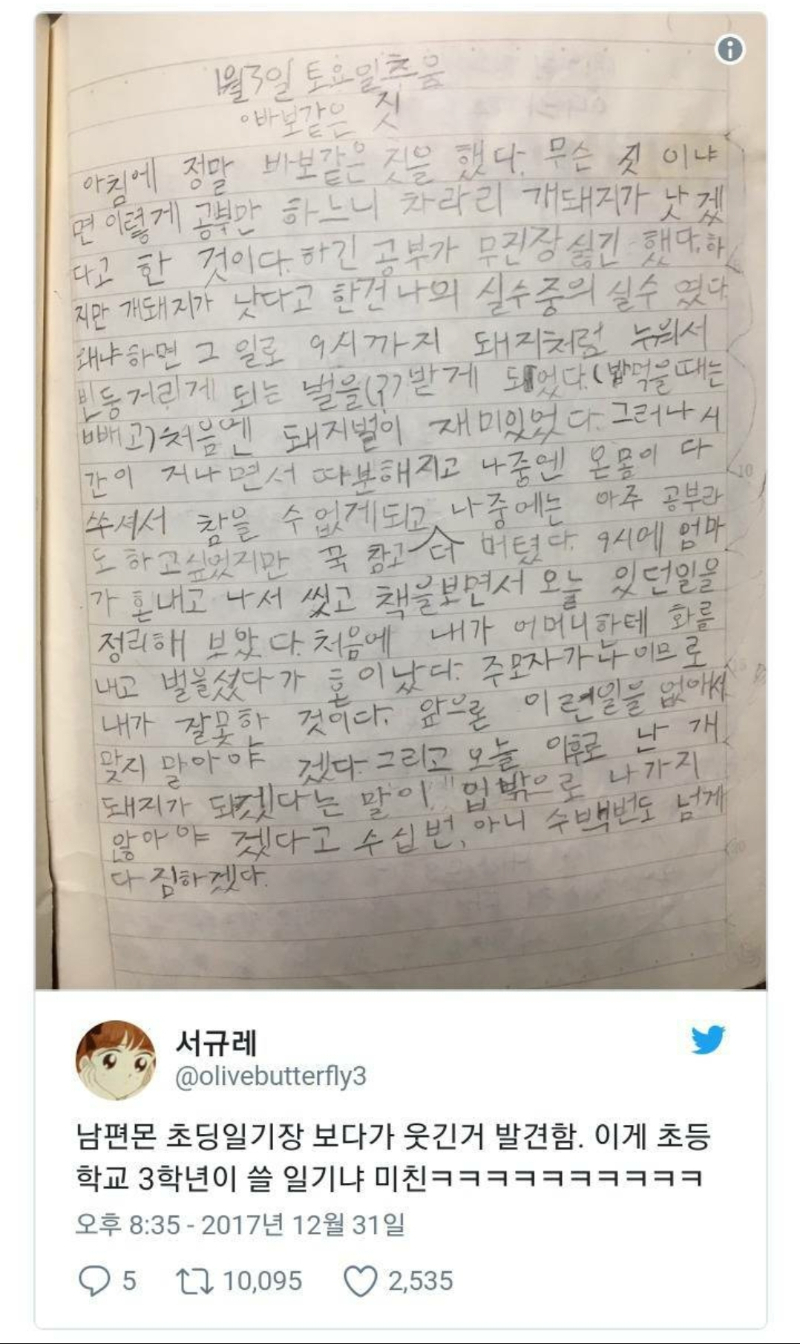 1월3일 토요일추움
◦바보같은 짓
아침에 정말 바보같은 짓을 했다. 무슨 짓 이냐
면 이렇게 공부만 하느니 차라리 개돼지가 낫겠
다고 한 것이다. 하긴 공부가 무진장 싫긴 했다. 하
지만 개돼지가 낫다고 한건 나의 실수중의 실수 였다
왜냐하면 그 일로 9시까지 돼지처럼 누워서
빈둥거리게 되는 벌을(?)받게 되었다.(밥먹을때는
빼고)처음엔 돼지벌이 재미있었다. 그러나 시
간이 지나면서 따분해지고 나중엔 온몸이 다
쑤셔서 참을 수없게되고 나중에는 아주 공부라
도 하고싶었지만 꾹 참고 더 버텼다. 9시에 엄마
가 혼내고 나서 씻고 책을보면서 오늘 있던일을
정리해 보았다. 처음에 내가 어머니한테 화를
내고 벌을섰다가 혼이났다. 주모자가나이므로
내가 잘못한 것이다. 앞으론 이런일을 없애서
맞지 말아야 겠다. 그리고 오늘 이후로 난 개
돼지가 되겠다는 말이 입밖으로 나가지
않아야 겠다고 수십번, 아니 수백번도 넘게
다짐하겠다.
서규레
@olivebutterfly3
남편몬 초딩일기장 보다가 웃긴거 발견함. 이게 초등
학교 3학년이 쓸 일기냐 미친ㅋㅋㅋㅋㅋㅋㅋㅋㅋㅋ
오후 8:35 - 2017년 12월 31일
5 10,095 2,535